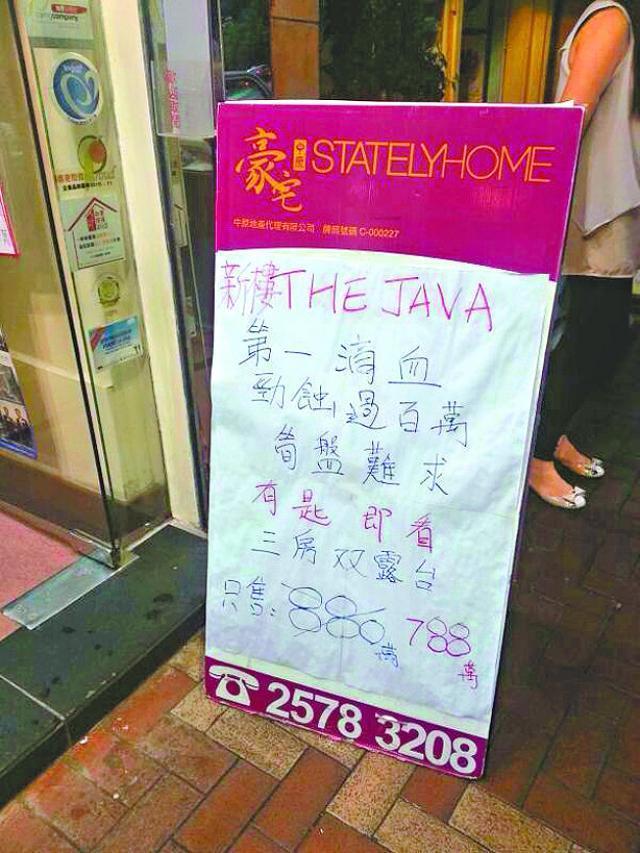 豪宅 中原 STATELYHOME
中原地產代理有限公司 牌照號碼 C-000227
新樓 THE JAVA
第一滴血
勁蝕過百萬
筍盤難求
有匙即看
三房双露台
只售: 886萬 788萬
2578 3208